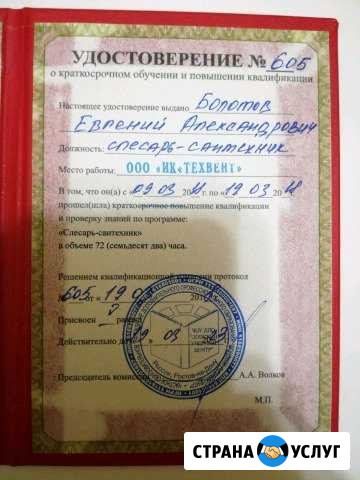 УДОСТОВЕРЕНИЕ № 605
о краткосрочном обучении и повышении квалификации
Настоящее удостоверение выдано Болотов
Евгений Александрович
Должность: слесарь-сантехник
Место работы: ООО «ИК«ТЕХВЕНТ»
В том, что он(а) с 09 03 г. по 19 03
прошел(шла) краткосрочное повышение квалификации
и проверку знаний по программе:
«Слесарь-сантехник»
в объеме 72 (семьдесят два) часа.
Решением квалификационной комиссии протокол
№ 605 от 19 0
Присвоен разряд
Действительно до 19 03
Председатель комиссии А.А. Волков
М.П.
СТРАНА УСЛУГ